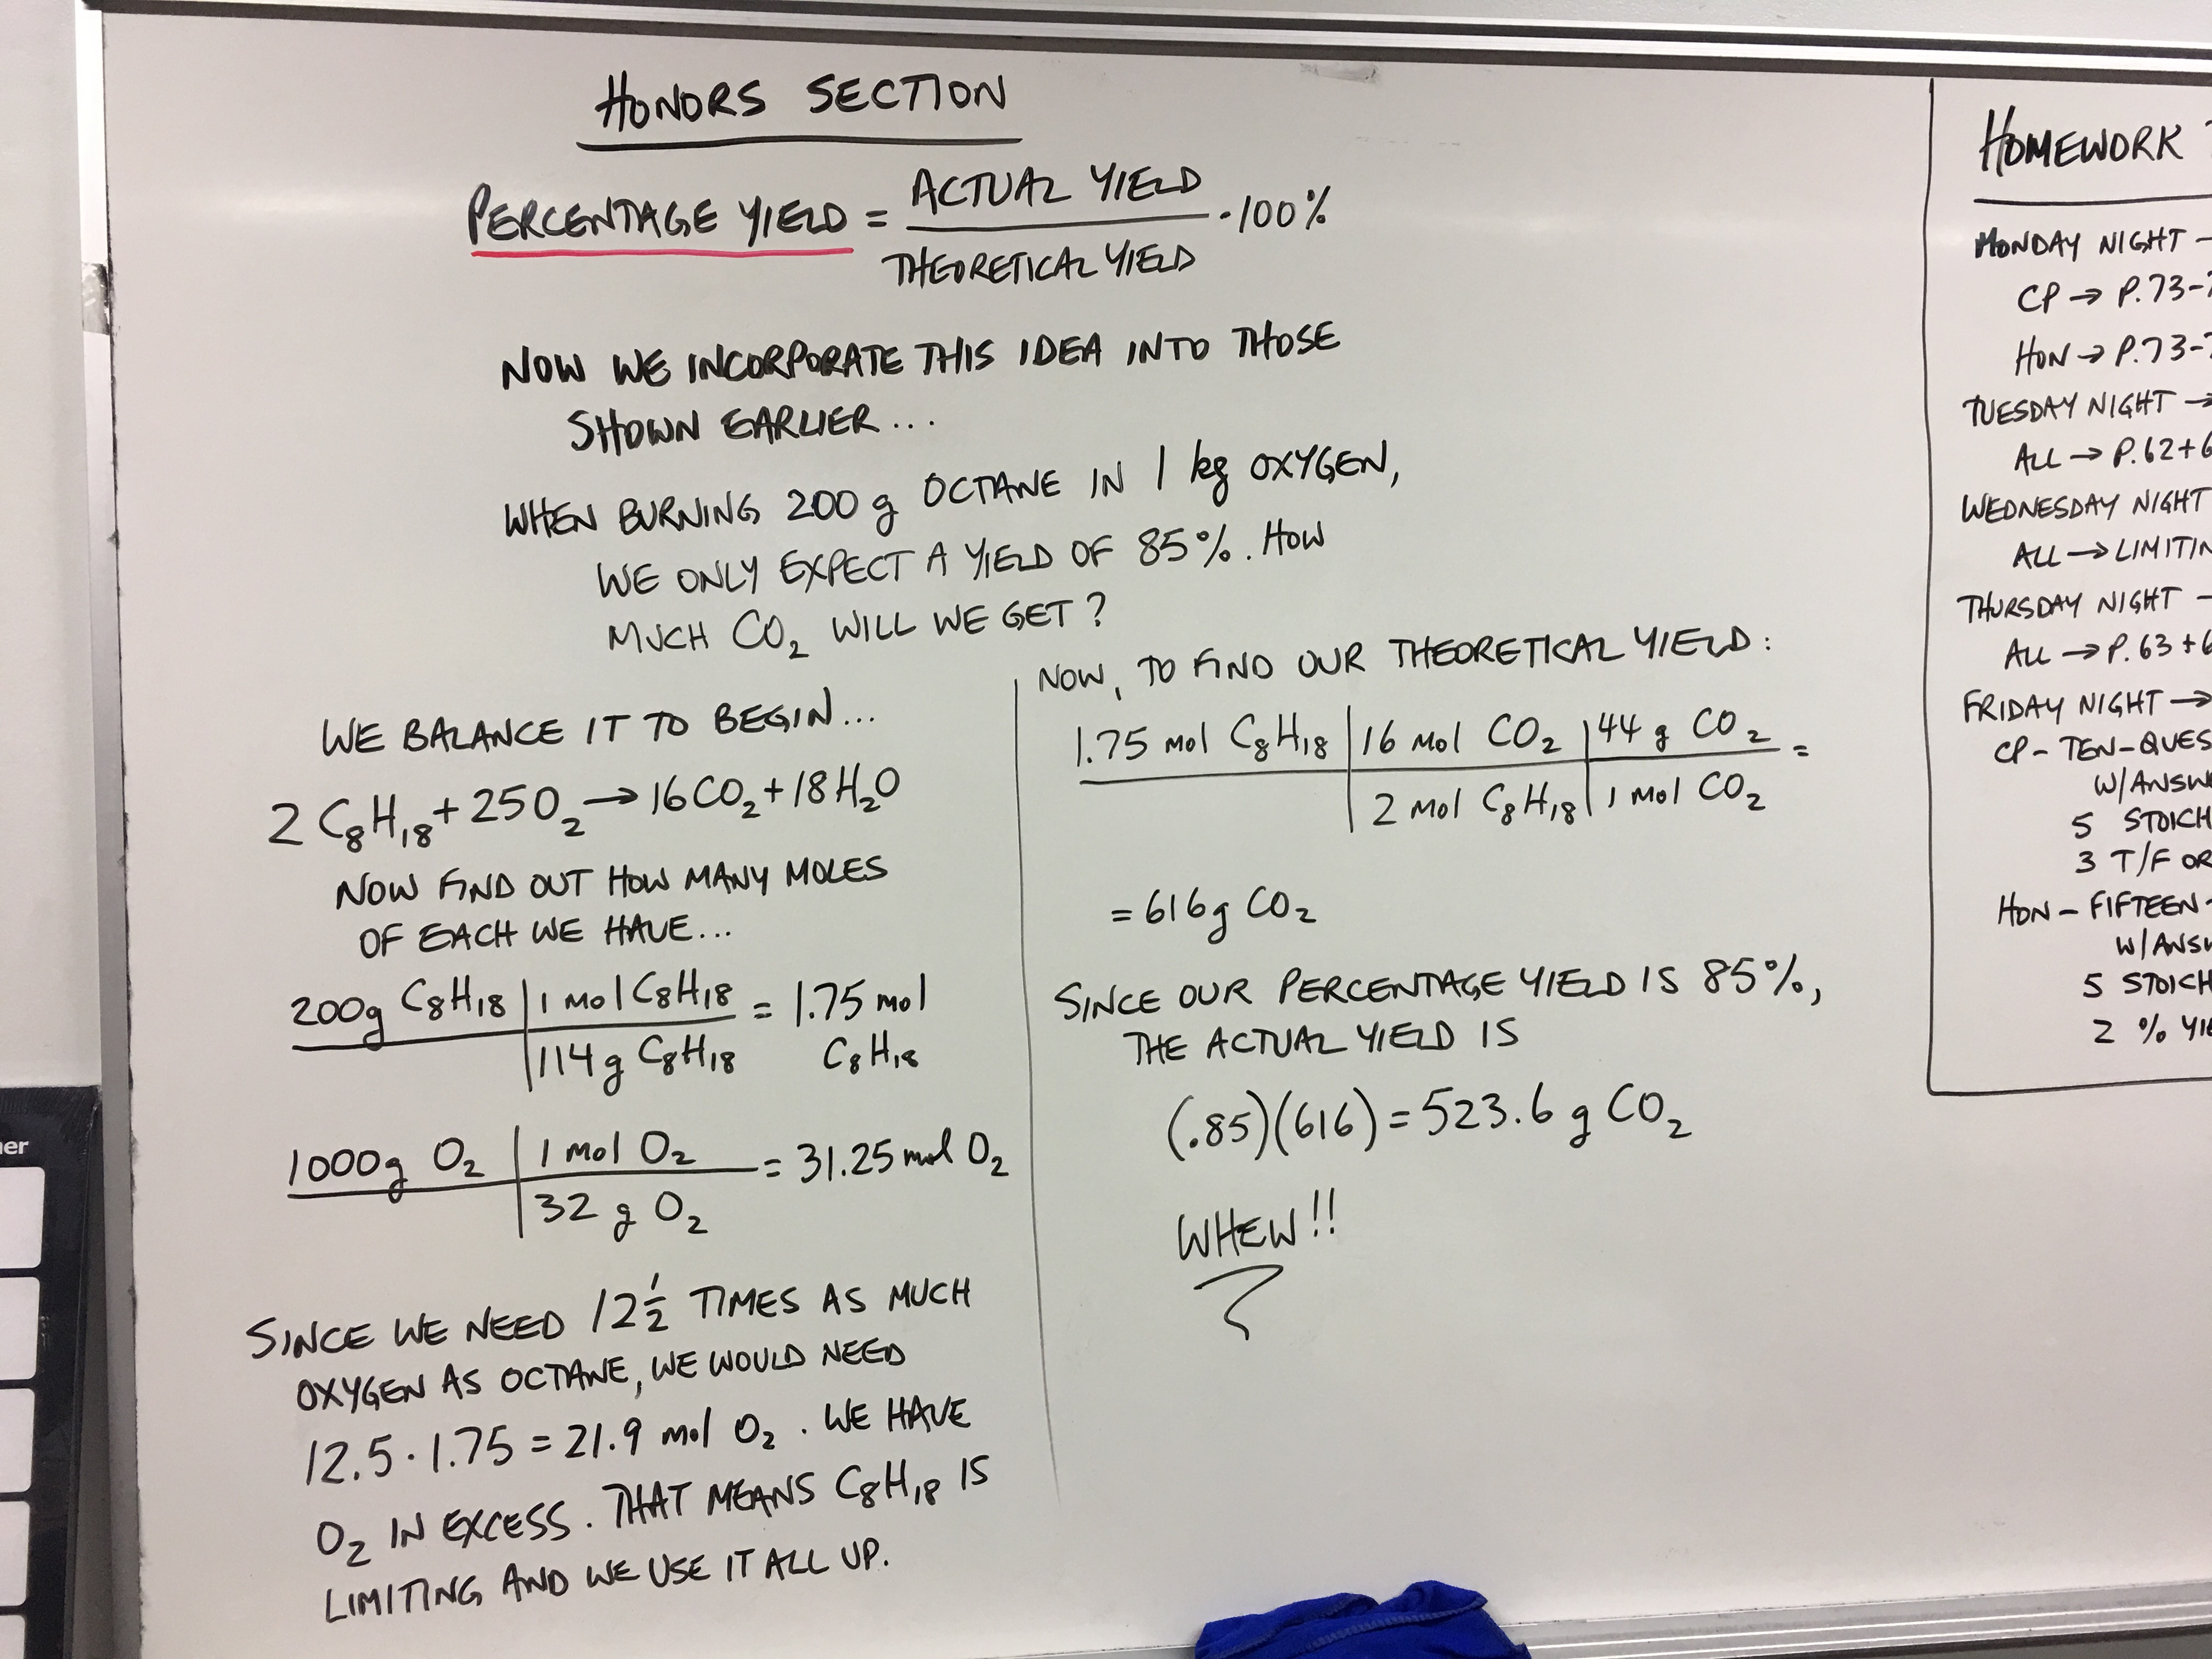 HONORS SECTION
PERCENTAGE YIELD = ACTUAL YIELD / THEORETICAL YIELD · 100%
NOW WE INCORPORATE THIS IDEA INTO THOSE
SHOWN EARLIER...
WHEN BURNING 200 g OCTANE IN 1 kg OXYGEN,
WE ONLY EXPECT A YIELD OF 85%. HOW
MUCH CO₂ WILL WE GET?
WE BALANCE IT TO BEGIN...
2 C₈H₁₈ + 25O₂ → 16CO₂ + 18H₂O
NOW FIND OUT HOW MANY MOLES
OF EACH WE HAVE...
200g C₈H₁₈ | 1 mol C₈H₁₈ = 1.75 mol
114 g C₈H₁₈ C₈H₁₈
1000g O₂ | 1 mol O₂ = 31.25 mol O₂
32 g O₂
SINCE WE NEED 12½ TIMES AS MUCH
OXYGEN AS OCTANE, WE WOULD NEED
12.5 · 1.75 = 21.9 mol O₂. WE HAVE
O₂ IN EXCESS. THAT MEANS C₈H₁₈ IS
LIMITING AND WE USE IT ALL UP.
NOW, TO FIND OUR THEORETICAL YIELD:
1.75 mol C₈H₁₈ | 16 mol CO₂ | 44 g CO₂ =
2 mol C₈H₁₈ | 1 mol CO₂
= 616g CO₂
SINCE OUR PERCENTAGE YIELD IS 85%,
THE ACTUAL YIELD IS
(.85)(616) = 523.6 g CO₂
WHEW!!
HOMEWORK
MONDAY NIGHT –
CP → P.73-
HON → P.73-
TUESDAY NIGHT →
ALL → P.62+6
WEDNESDAY NIGHT
ALL → LIMITIN
THURSDAY NIGHT –
ALL → P.63+6
FRIDAY NIGHT →
CP – TEN-QUES
W/ANSW
5 STOICH
3 T/F OR
HON – FIFTEEN-
W/ANSW
5 STOICH
2 % YIE
er